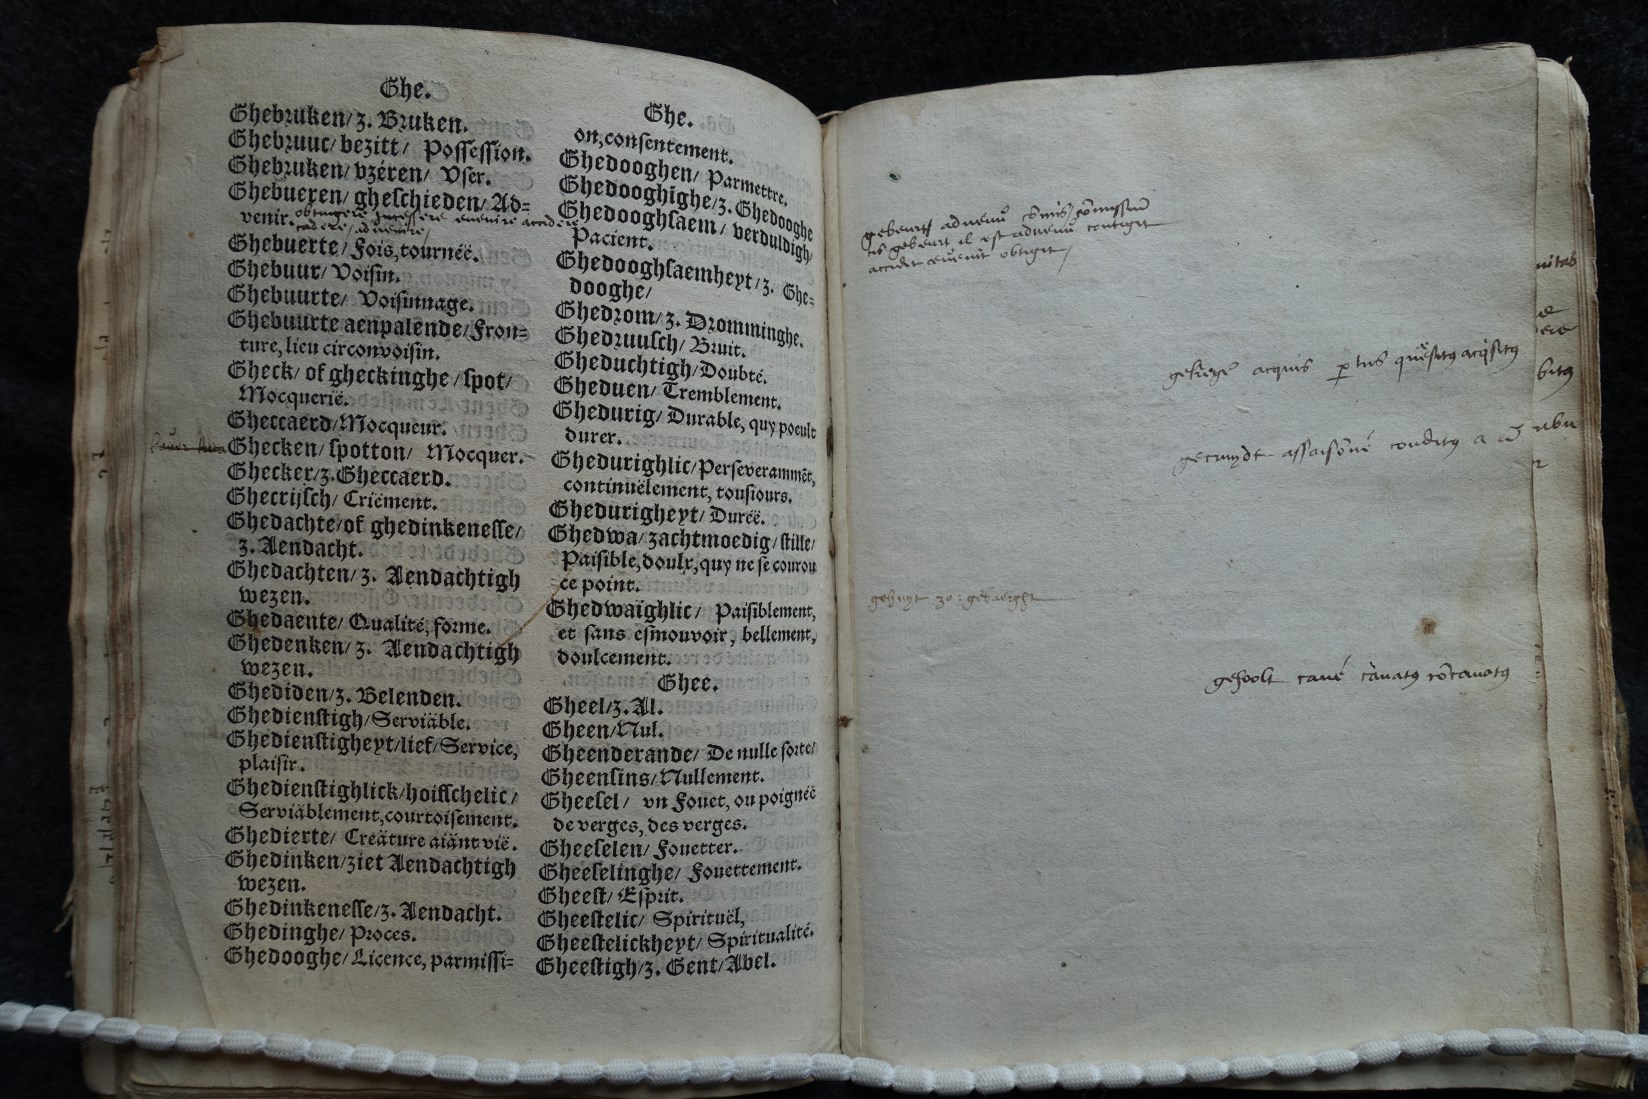 Ghe.
Ghebruken/ z. Bruken.
Ghebruuc/ bezitt/ Possession.
Ghebruken/ vzéren/ Vser.
Ghebueren/ gheschieden/ Ad=
venir. obtingere incessere euenire accidere
cadere, aduenire,
Ghebuerte/ Fois, tournéë.
Ghebuur/ Voisin.
Ghebuurte/ Voisinnage.
Ghebuurte aenpalende/ Fron=
ture, lieu circonvoisin.
Gheck/ of gheckinghe/ spot/
Mocquerië.
Gheccaerd/ Mocqueur.
Ghecken/ spotton/ Mocquer.
Ghecker/ z. Gheccaerd.
Ghecrijsch/ Criëment.
Ghedachte/ of ghedinkenesse/
z. Aendacht.
Ghedachten/ z. Aendachtigh
wezen.
Ghedaente/ Qualité, forme.
Ghedenken/ z. Aendachtigh
wezen.
Ghediden/ z. Belenden.
Ghedienstigh/ Serviäble.
Ghedienstigheyt/ lief/ Service,
plaisir.
Ghedienstighlick/ hoifschelic/
Serviäblement, courtoisement.
Ghedierte/ Creäture aiänt vië.
Ghedinken/ ziet Aendachtigh
wezen.
Ghedinkenesse/ z. Aendacht.
Ghedinghe/ Proces.
Ghedooghe/ Licence, parmissi=
Ghe.
on, consentement.
Ghedooghen/ Parmettre.
Ghedooghighe/ z. Ghedooghe
Ghedooghsaem/ verduldigh/
Pacient.
Ghedooghsaemheyt/ z. Ghe=
dooghe/
Ghedrom/ z. Dromminghe.
Ghedruusch/ Bruit.
Gheduchtigh/ Doubté.
Gheduen/ Tremblement.
Ghedurig/ Durable, quy poeult
durer.
Ghedurighlic/ Perseverammēt,
continuëlement, tousiours.
Ghedurigheyt/ Duréë.
Ghedwa/ zachtmoedig/ stille/
Paisible, doulx, quy ne se courou
ce point.
Ghedwaighlic/ Paisiblement,
et sans esmouvoir, bellement,
doulcement.
Ghee.
Gheel/ z. Al.
Gheen/ Nul.
Gheenderande/ De nulle sorte/
Gheensins/ Nullement.
Gheesel/ vn Fouet, ou poignéë
de verges, des verges.
Gheeselen/ Fouetter.
Gheeselinghe/ Fouettement.
Gheest/ Esprit.
Gheestelic/ Spirituël,
Gheestelickheyt/ Spiritualité.
Gheestigh/ z. Gent/ Abel.
gebeurt il est aduenu contigit
obtigit/
acquis
gecruydt assaisōné conditus a ū
gehoolt caué cauatus cōcauatus